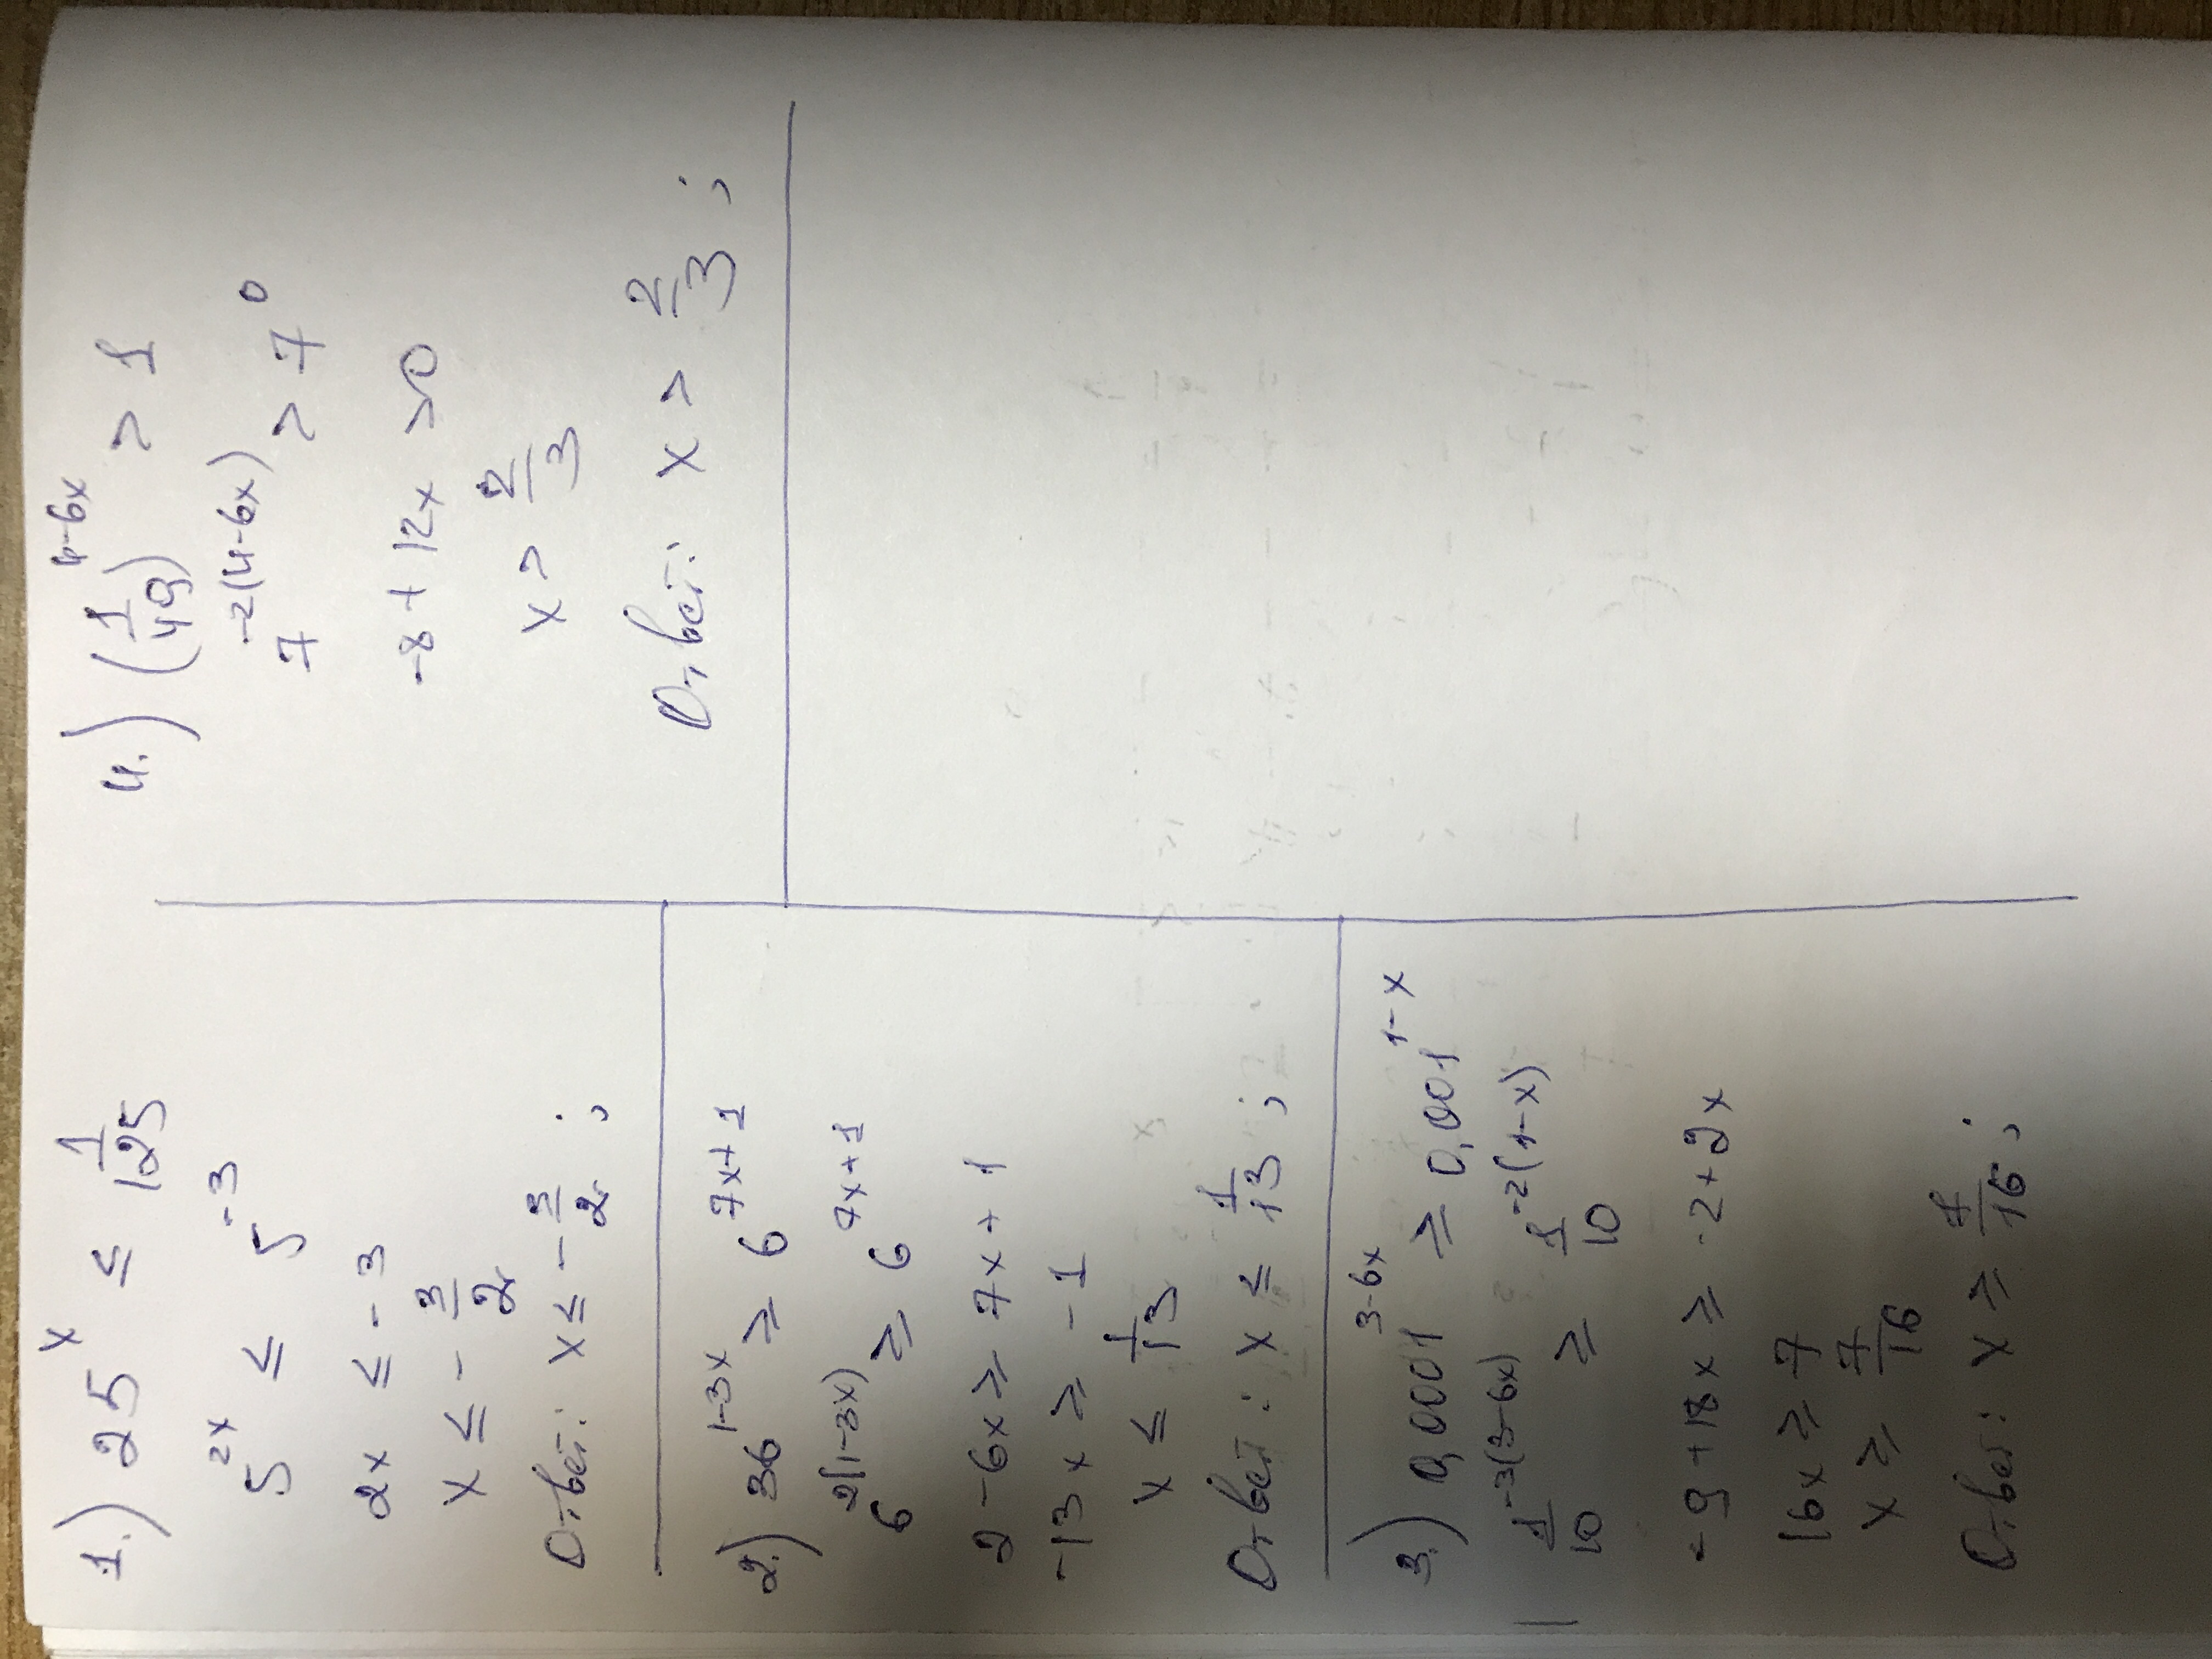 1.) 25^x ≤ 1/125
5^2x ≤ 5^-3
2x ≤ -3
x ≤ - 3/2
Ответ: x ≤ - 3/2 ;
2.) 36^1-3x ≥ 6^7x+1
6^2(1-3x) ≥ 6^7x+1
2-6x ≥ 7x+1
-13x ≥ -1
x ≤ 1/13
Ответ: x ≤ 1/13 ;
3.) 0,0001^3-6x ≥ 0,001^1-x
1/10^-3(3-6x) ≥ 1/10^-2(1-x)
-9+18x ≥ -2+2x
16x ≥ 7
x ≥ 7/16
Ответ: x ≥ 7/16 ;
4.) (1/49)^4-6x > 1
7^-2(4-6x) > 7^0
-8+12x >0
x > 2/3
Ответ: x > 2/3 ;